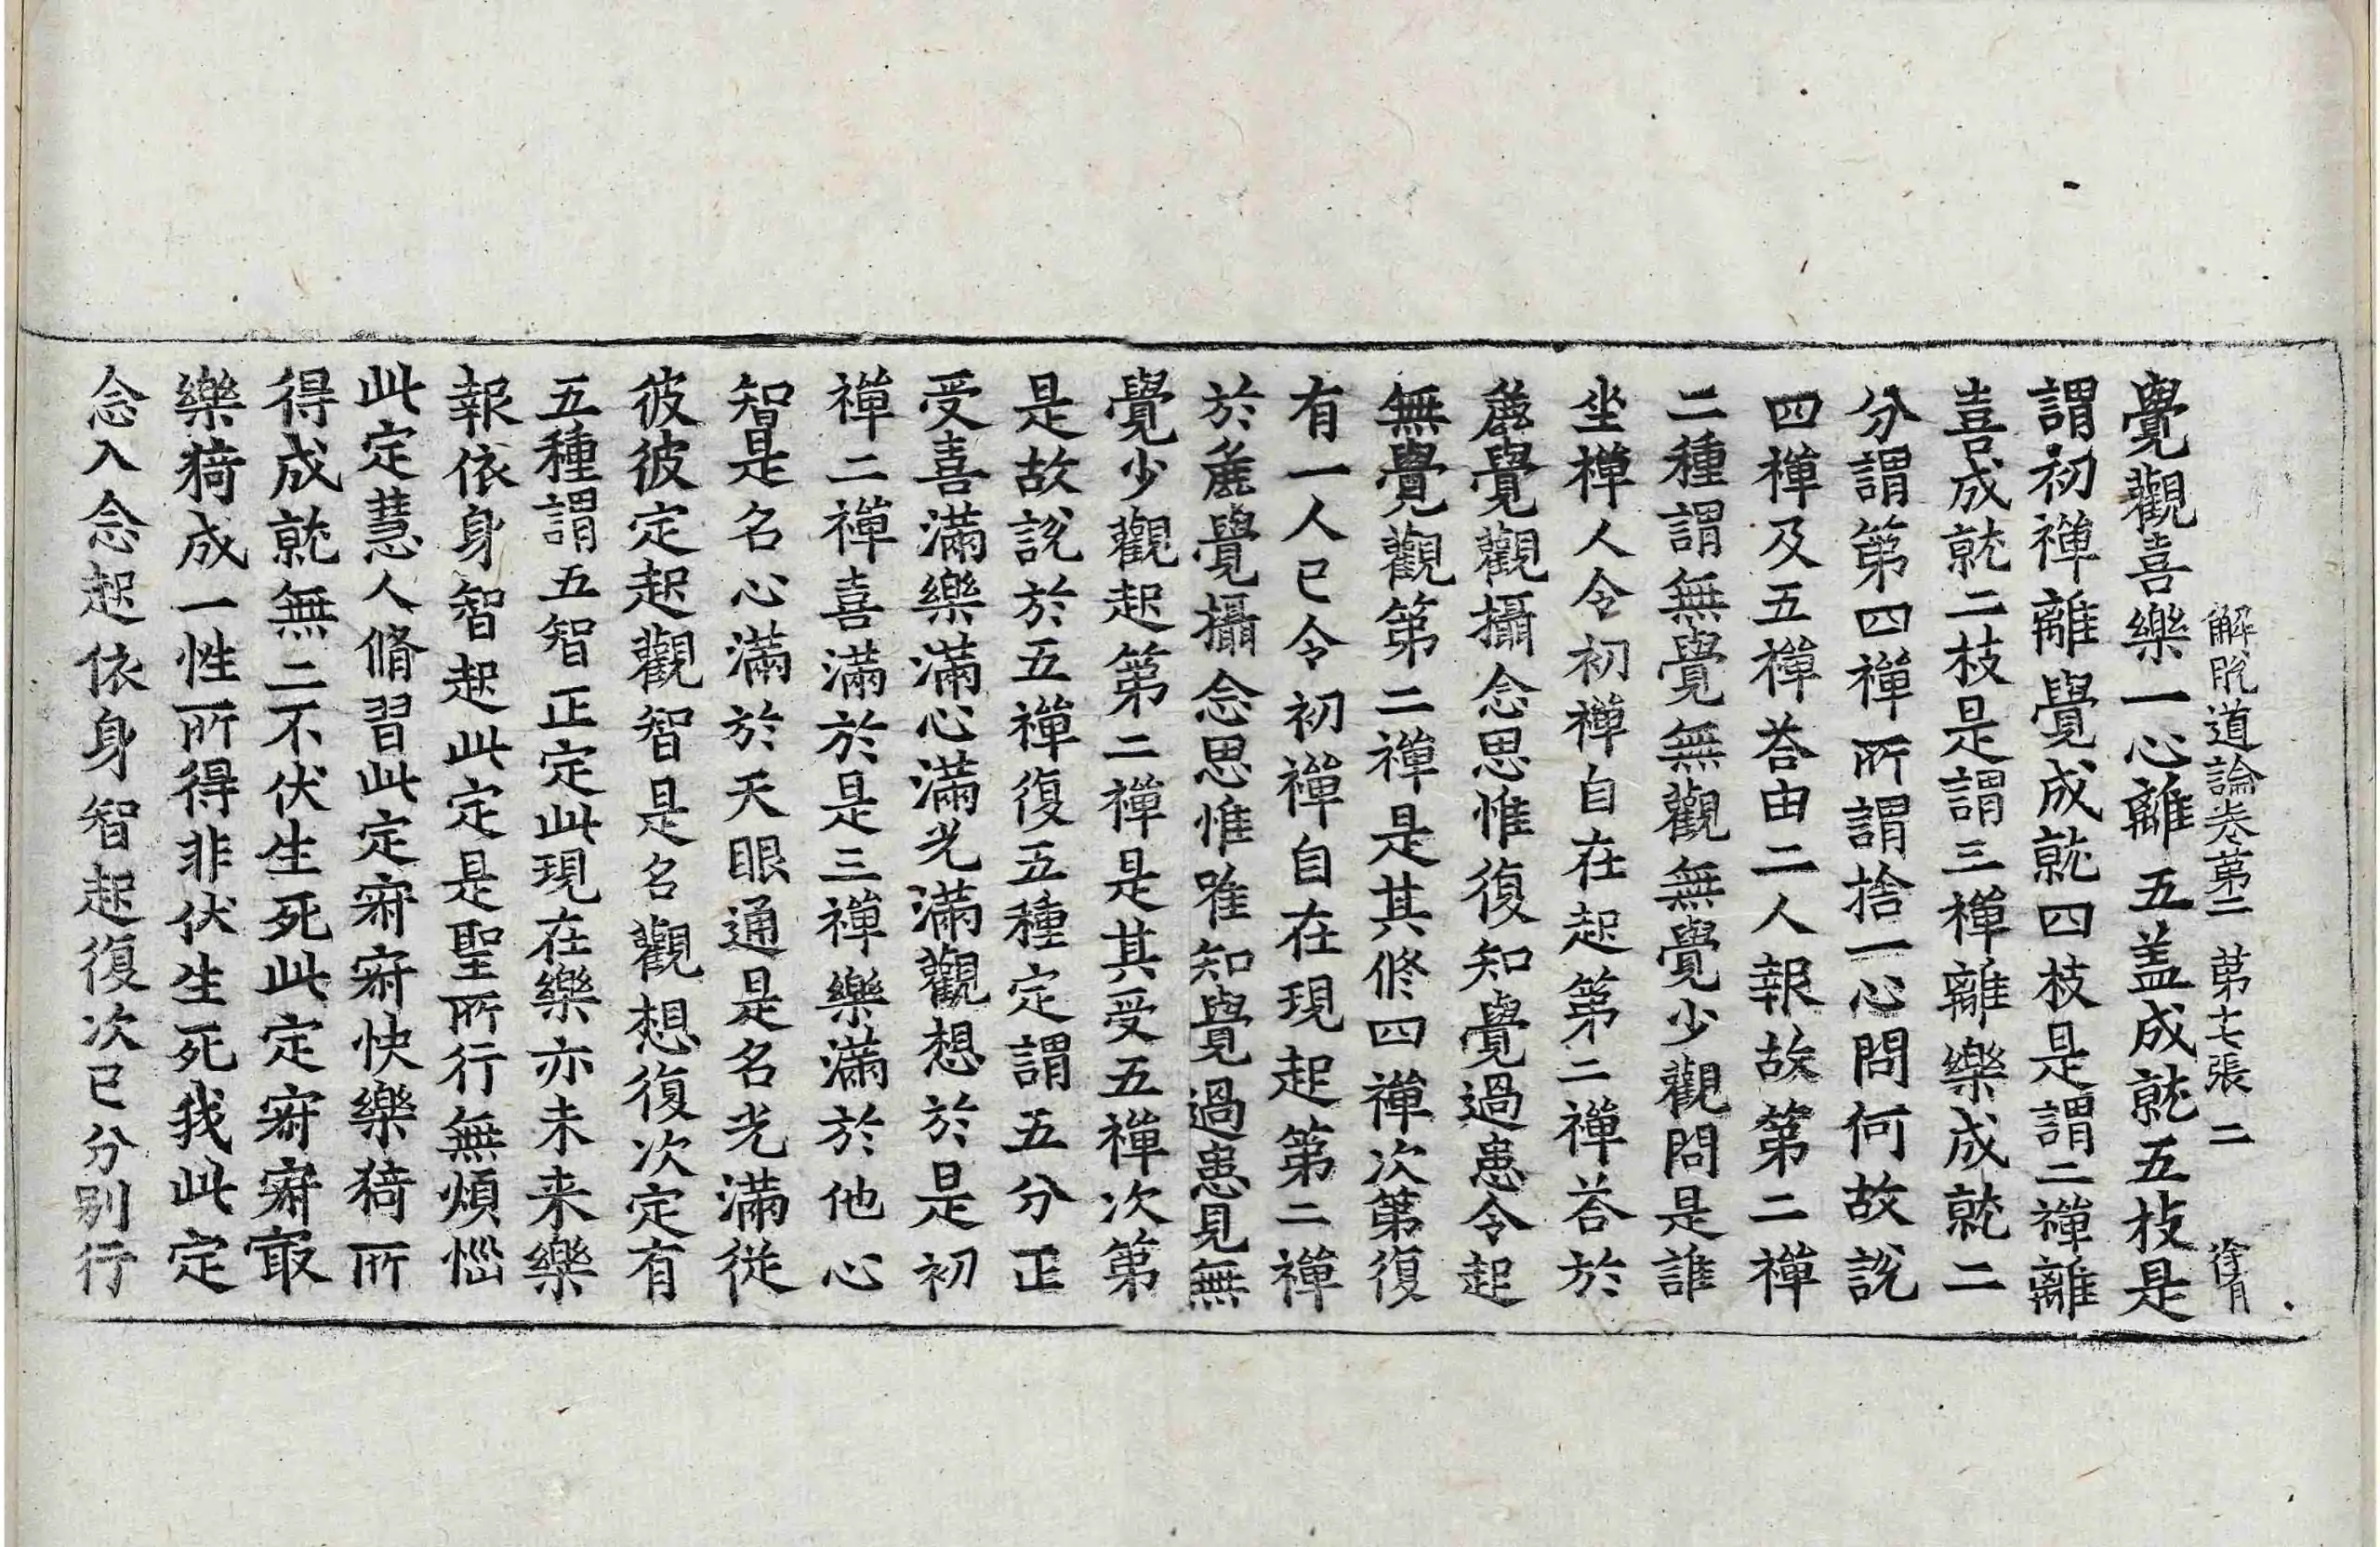 解脫道論卷第二 第七張 二
覺觀喜樂一心離五盖成就五枝是
謂初禪離覺成就四枝是謂二禪離
喜成就二枝是謂三禪離樂成就二
分謂第四禪所謂捨一心問何故說
四禪及五禪荅由二人報故第二禪
二種謂無覺無觀無覺少觀問是誰
坐禪人令初禪自在起第二禪荅於
麁覺觀攝念思惟復知覺過患令起
無覺觀第二禪是其修四禪次第復
有一人已令初禪自在現起第二禪
於麁覺攝念思惟唯知覺過患見無
覺少觀起第二禪是其受五禪次第
是故說於五禪復五種定謂五分正
受喜滿樂滿心滿光滿觀想於是初
禪二禪喜滿於是三禪樂滿於他心
智是名心滿於天眼通是名光滿從
彼彼定起觀智是名觀想復次定有
五種謂五智正定此現在樂亦未来樂
報依身智起此定是聖所行無煩惱
此定慧人脩習此定寂寂快樂猗所
得成就無二不伏生死此定寂寂㝡
樂猗成一性所得非伏生死我此定
念入念起依身智起復次已分別行